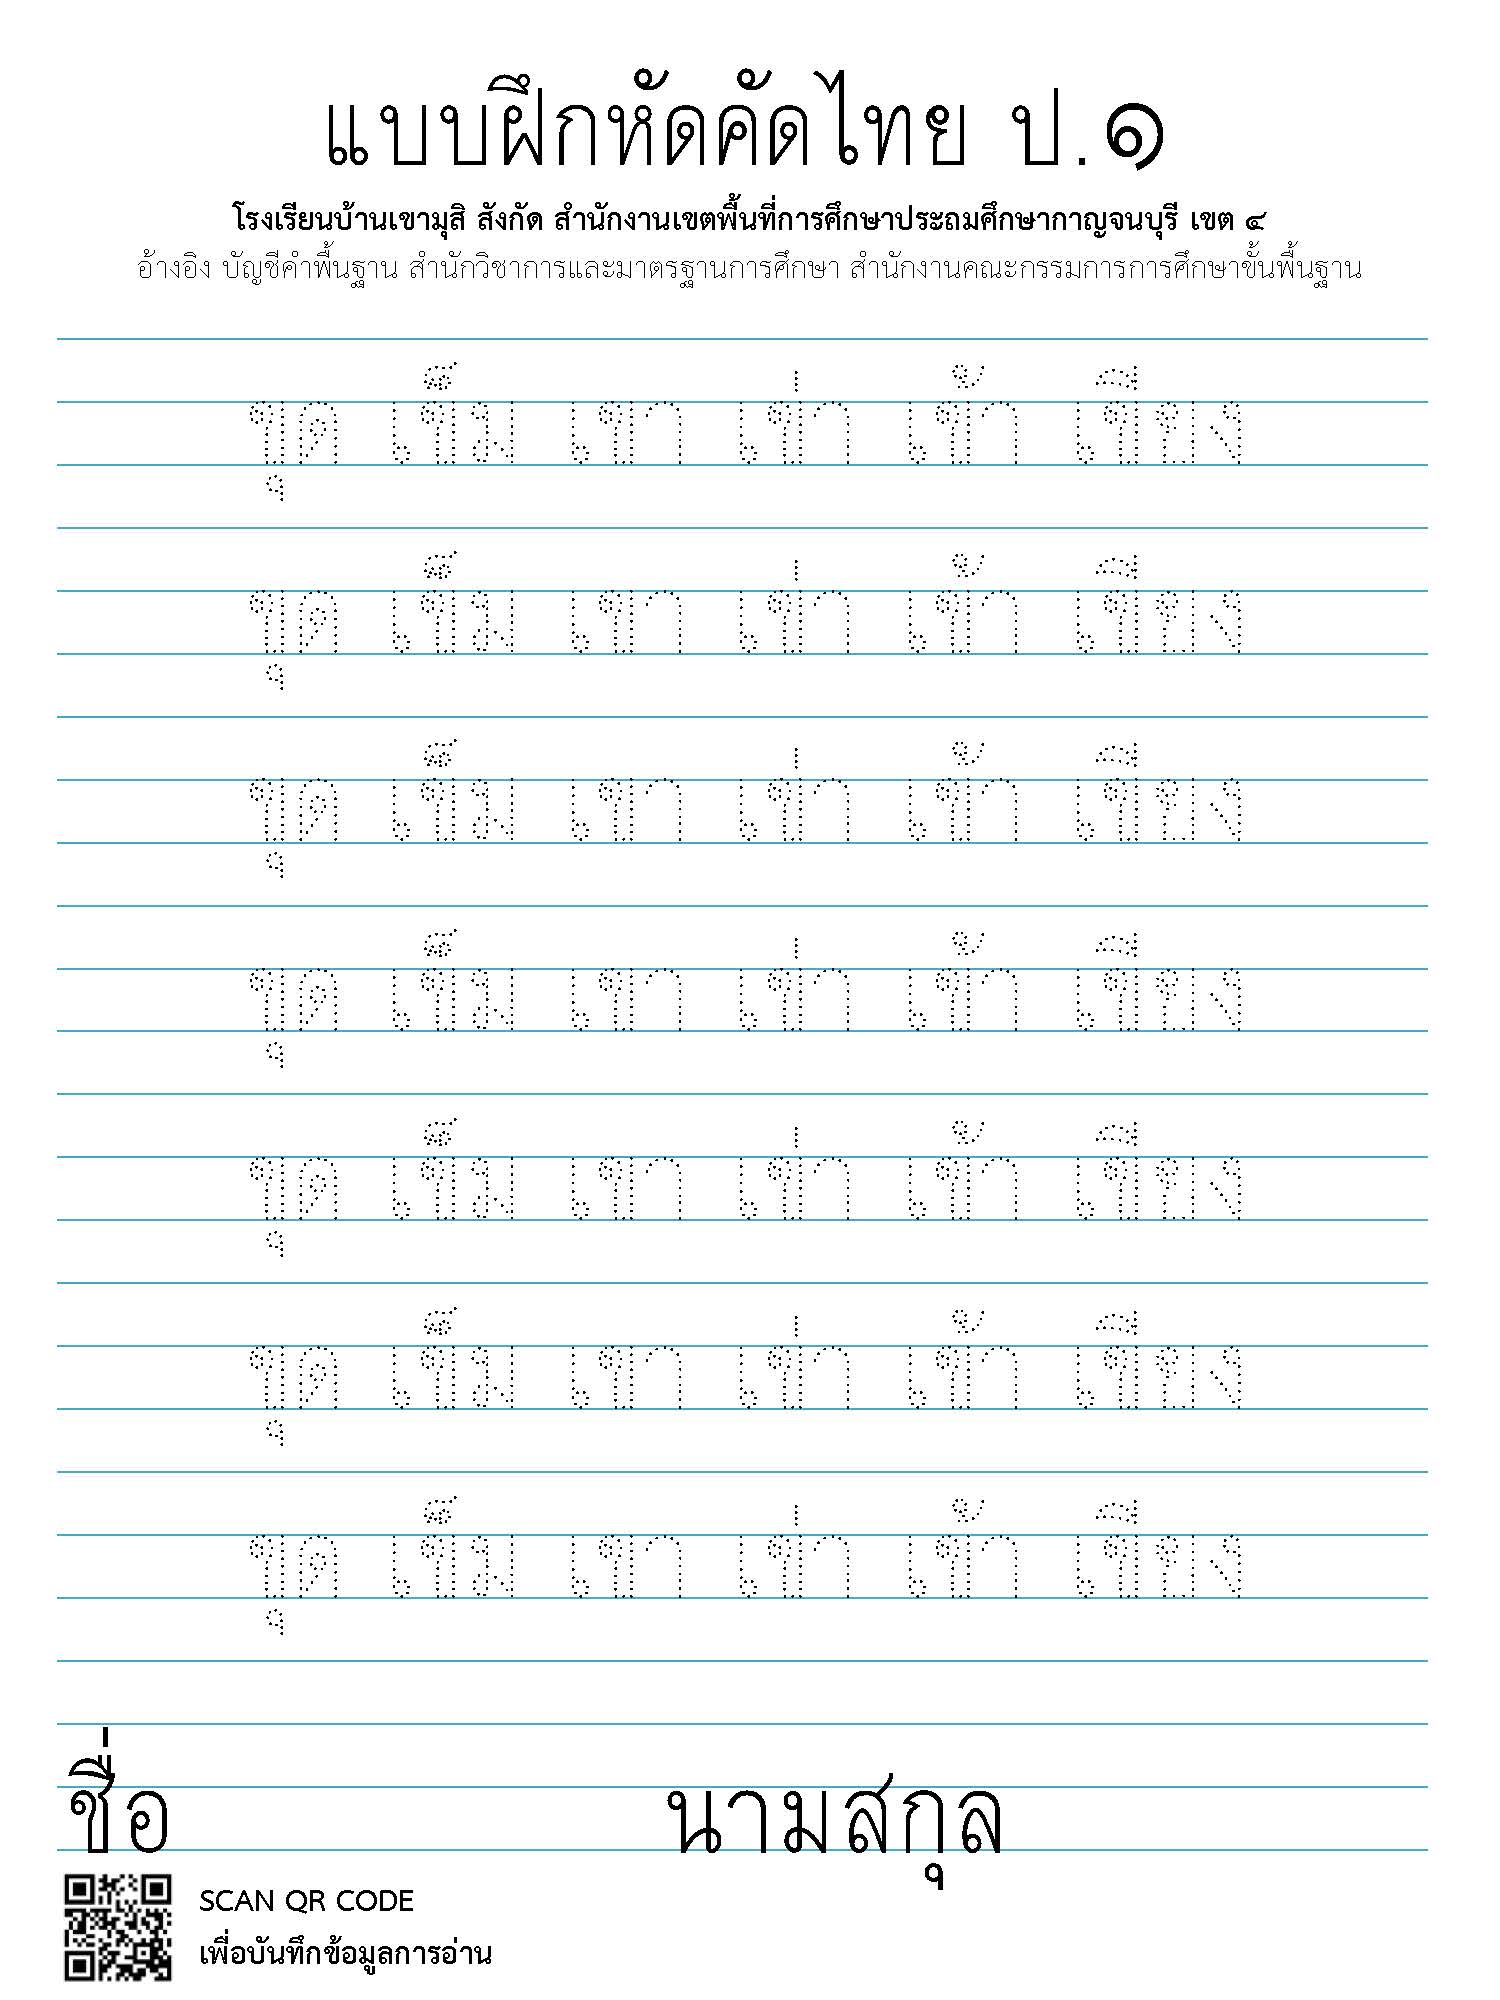 แบบฝึกหัดคัดไทย ป.๑
โรงเรียนบ้านเขามุสิ สังกัด สำนักงานเขตพื้นที่การศึกษาประถมศึกษากาญจนบุรี เขต ๔
อ้างอิง บัญชีคำพื้นฐาน สำนักวิชาการและมาตรฐานการศึกษา สำนักงานคณะกรรมการการศึกษาขั้นพื้นฐาน
ขุด เข็ม เขา เข่า เข้า เขียง
ขุด เข็ม เขา เข่า เข้า เขียง
ขุด เข็ม เขา เข่า เข้า เขียง
ขุด เข็ม เขา เข่า เข้า เขียง
ขุด เข็ม เขา เข่า เข้า เขียง
ขุด เข็ม เขา เข่า เข้า เขียง
ขุด เข็ม เขา เข่า เข้า เขียง
ชื่อ นามสกุล
SCAN QR CODE
เพื่อบันทึกข้อมูลการอ่าน